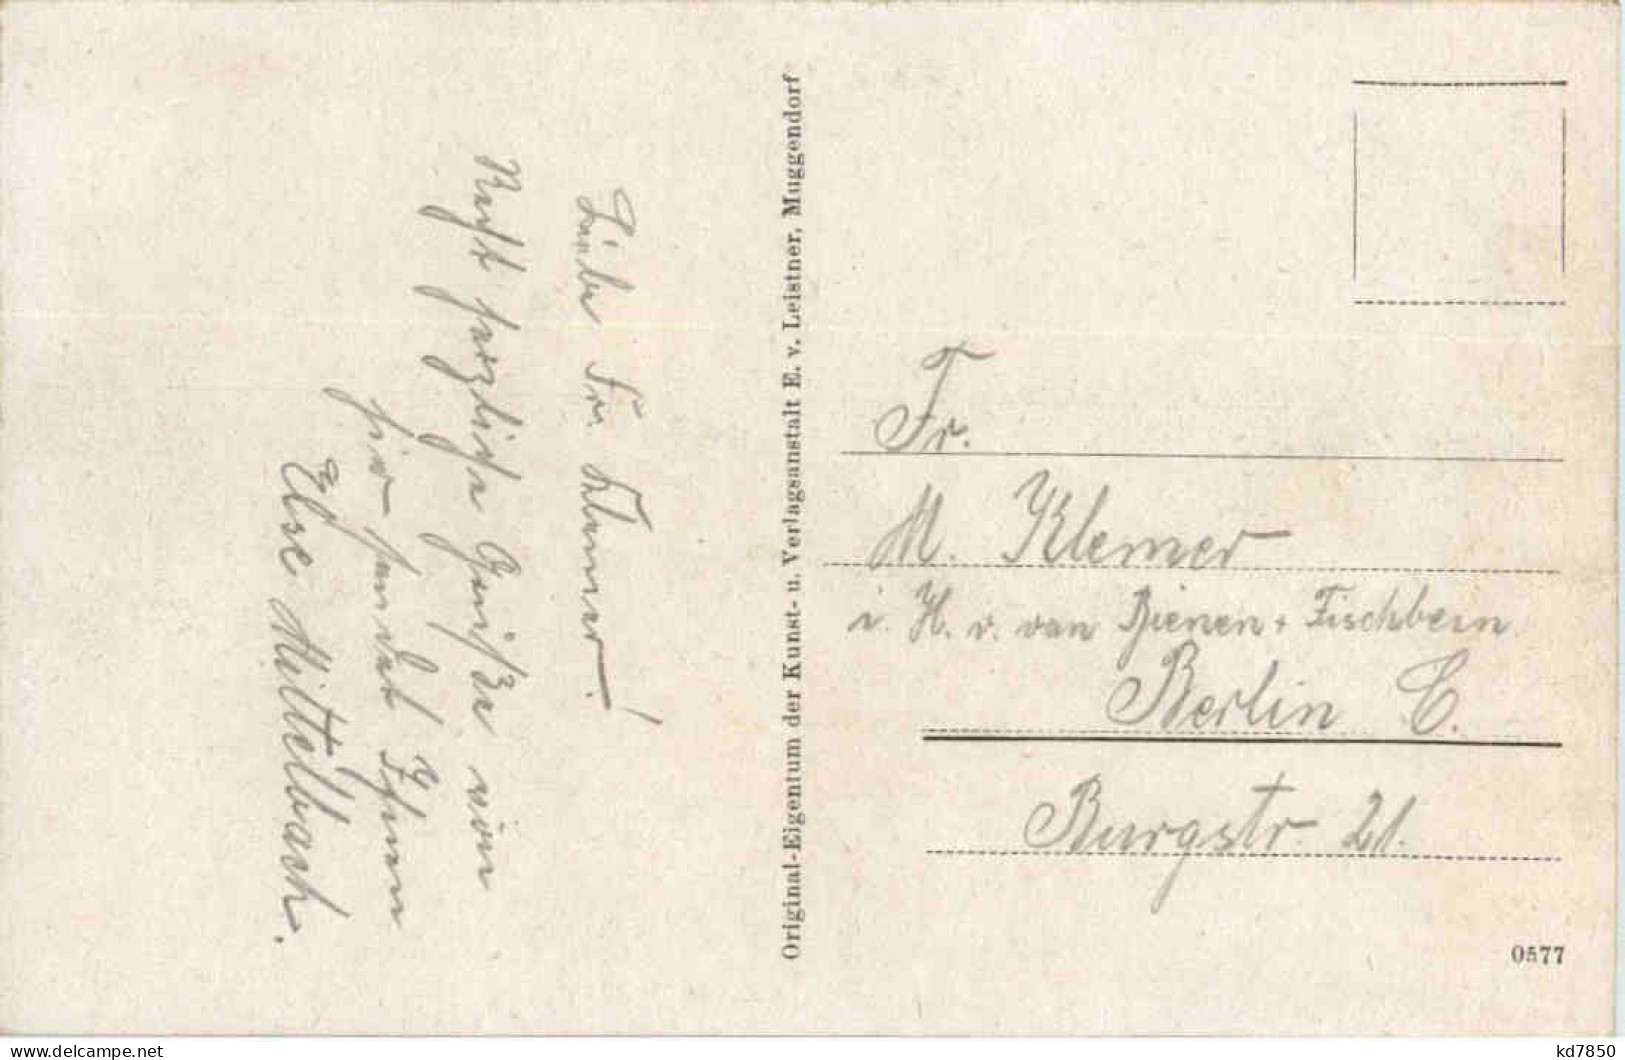 Liebe Fr. Klemer!
Recht herzliche Grüße von
hier sendet Ihnen
Else Mittelbach.
Original-Eigentum der Kunst- u. Verlagsanstalt E. v. Leistner, Muggendorf
Fr.
M. Klemer
i. H. v. van Bienen + Fischbein
Berlin C.
Burgstr. 21.
0577
kd7850